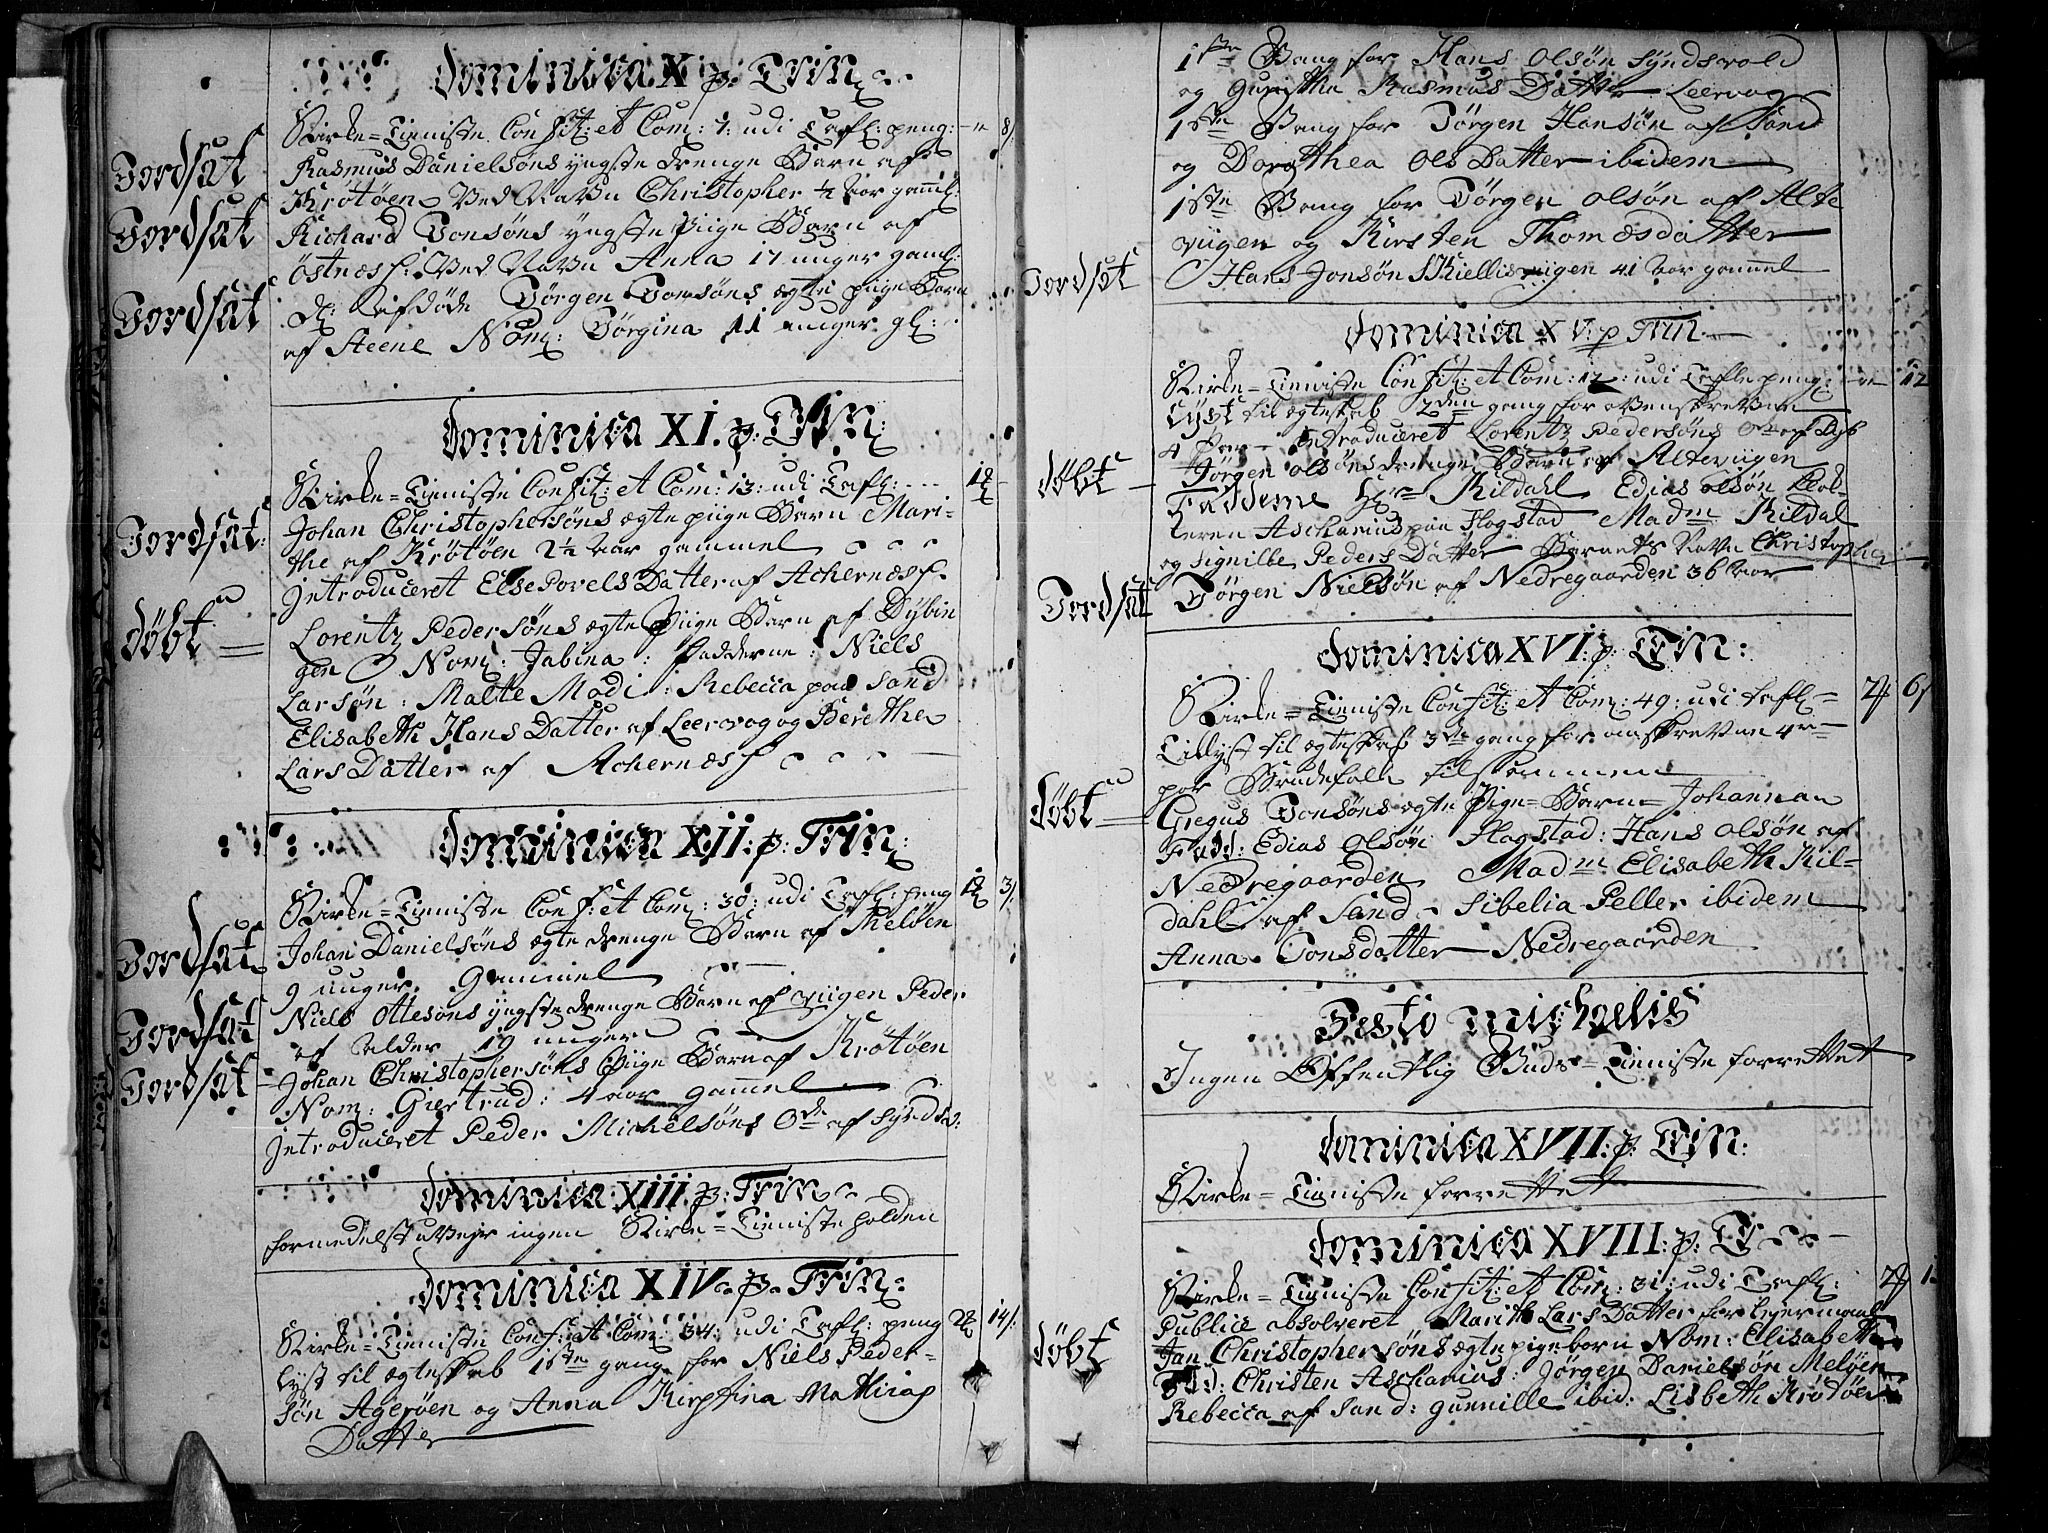 Dominica X p: Trin:
Kirke=Tieniste Confit: et Com: 7: udi Tafl: peng: – 8/
Jordsat Rasmus Danielsøns yngste drenge Barn af
Krøtøen Ved Navn Christopher ½ aar gamel:
Jordsat Richard Jonsøns yngste piige Barn af
Østnæss: Ved Navn Anna 17 uger gaml:
Jordsat Afdøde Jørgen Jonsøns ægte piige Barn
af Steene Nom: Jørgina 11 uger gl:
Dominica XI. p: Trin:
Kirke=Tieniste Confit: et Com: 13: udi Tafl:
Jordsat: Johan Christophersøns ægte piige Barn Mari-
the af Krøtøen 2½ aar gammel
introduceret Else Povels Datter af Achernæss
døbt Lorentz Pedersøns ægte Piige Barn af Dybin
gen Nom: Jabina: Fadderne: Niels
Larsøn: Malte Modi: Rebecca paa Sand
Elisabeth Hans Datter af Leervog og Berethe
Lars Datter af Achernæss
Dominica XII: p: Trin:
Kirke=Tieniste Conf: et Com: 30: udi Tafl: peng 3/
Jordsat Johan Danielsøns ægte drenge Barn af Skeløen
9 uuger Gammel
Jordsat Niels Ottesøns yngste drenge Barn af Viigen Peder
af alder 19 uuger
Jordsat Johan Christophersøns Piige Barn af Krøtøen
Nom: Giertrud: 4 aar gammel
introduceret Peder Michelsøns af Syndsv:
Dominica XIII p: Trin:
formedelst uveyr ingen Kirke=Tieniste holden
Dominica XIV. p. Trin:
Kirke=Tieniste Conf: et Com: 34: udi Tafl: peng 14/:
Lyst til ægteskab 1ste gang for Niels Peder-
søn Agerøen og Anna Kirstina Mathias
Datter
1ste Gang for Hans Olsøn Syndsvold
og Guritha Rasmus Datter Leervog
1ste Gang for Jørgen Hansøn af Sand
og Dorothea Ols Datter ibidem
1ste Gang for Jørgen Olsøn af Alte
viigen og Kirsten Thomæsdatter
Jordsat Hans Jonsøn Skiellisviigen 41 aar gammel
Dominica XV: p Trin
Kirke=Tieniste Confit: et Com: 12: udi Tafle peng: 12
Lyst til ægteskab 2den gang for
4 Par introduceret Lorentz Pedersøns af Dyb
døbt Jørgen Olsøns drenge Barn af Alteviigen
Fadderne Hr: Kildahl Edias Olsøn
Ascharius paa Flogstad Madm Kildal
og Signille Peders Datter Barnets Navn Christopher
Jordsat Jørgen Nielsøn af Nedregaarden 36 aar
Dominica XVI: p: Trin:
Kirke=Tieniste Confit: et Com: 49: udi tafl: 6/
Tillyst til ægteskab 3de gang for 4re
par Brudefolk tilsammen
døbt Gregus Jonsøns ægte Pige=Barn= Johanna
Fadd: Edias Olsøn Flogstad: Hans Olsøn af
Nedregaarden Madm Elisabeth Kil-
dahl af Sand – Sibelia Peller ibidem
Anna Jonsdatter Nedregaarden
Festo Michaelis
Ingen Offentlig Guds=Tieniste forrettet
Dominica XVII: p: Trin:
Kirke=Tieniste forrettet
Dominica XVIII: p: T
Kirke=Tieniste Confit: et Com: 31: udi Tafl:
Publice absolveret Marith Lars Datter for Leiermaal
døbt Jan Christophersøns ægte pigebarn Nom: Elisabeth
Fadd: Christen Ascharius: Jørgen Danielsøn Meløen
Rebecca af Sand: Gunnille ibid: Lisbeth Krøtøen